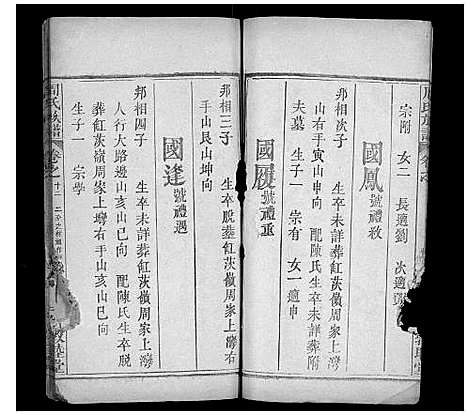 周氏族譜 卷之
宗附 女二 長適劉 次適
國鳳 號禮教
邦相次子 生卒未詳葬紅茨嶺周家上灣
山右手寅山申向 配陳氏生卒未詳葬附
夫墓 生子一 宗有 女一適申
國履 號禮重
邦相三子 生卒脫葬紅茨嶺周家上灣右
手山艮山坤向
國逢 號禮遇
邦相四子 生卒未詳葬紅茨嶺周家上灣
人行大路邊山亥山巳向 配陳氏生卒脫
葬紅茨嶺周家上灣右手山亥山巳向
生子一 宗學
周氏族譜 卷之十二
敦睦堂